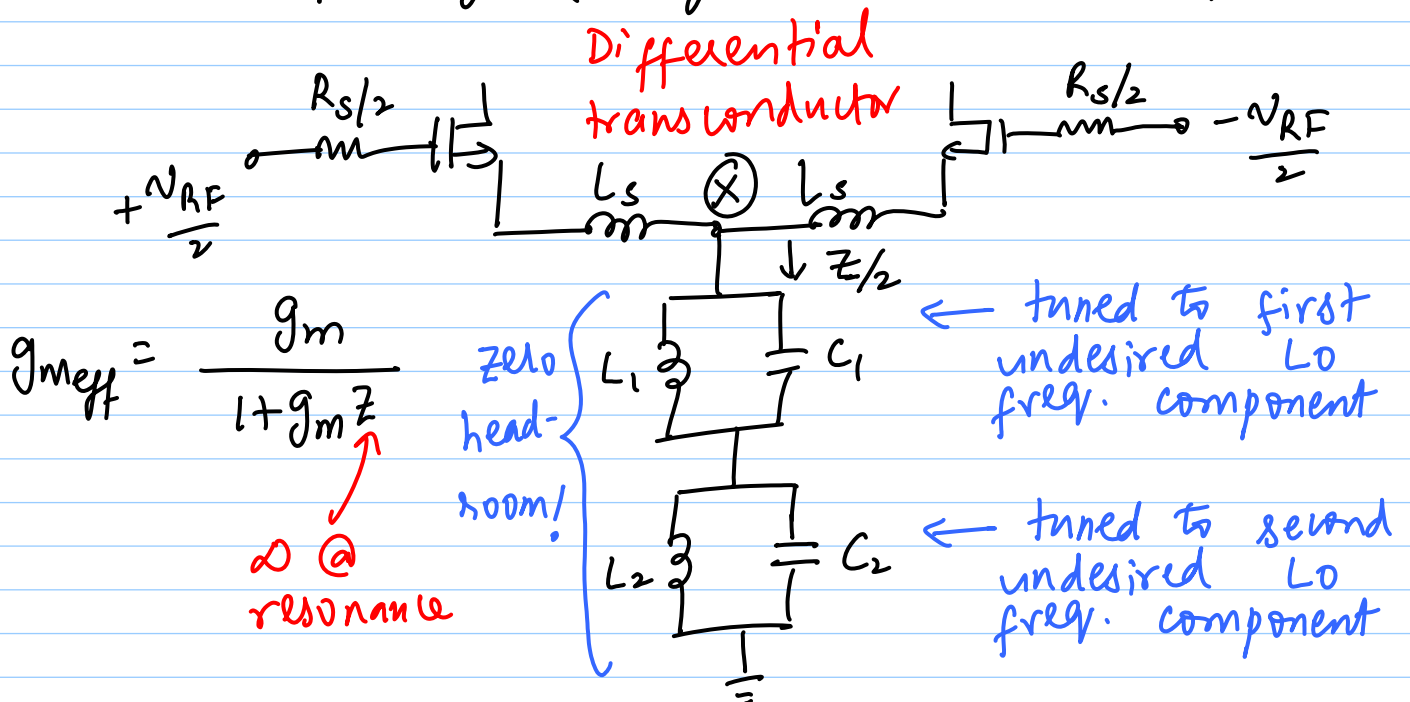 Differential
transconductor
Rs/2
Rs/2
+VRF/2
-VRF/2
Ls
X
Ls
↓ Z/2
gmeff = gm / (1+gmZ)
∞ @
resonance
zero
head-
room!
L1
C1
← tuned to first
undesired LO
freq. component
L2
C2
← tuned to second
undesired LO
freq. component